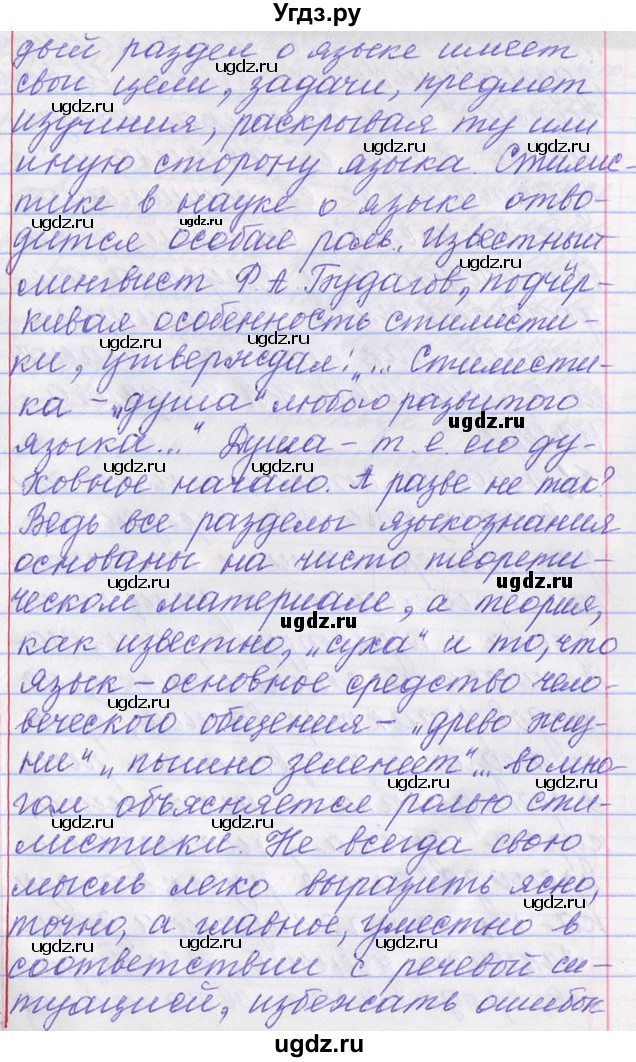 Угдз.ру
дый раздел о языке имеет
свои цели, задачи, предмет
изучения, раскрывая ту или
иную сторону языка. Стилис-
тике в науке о языке отво-
дится особая роль. Известный
лингвист Р. А. Будагов, подчёр-
кивая особенность стилисти-
ки, утверждал: „... Стилисти-
ка – „душа“ любого развитого
языка...“ Душа – т. е. его ду-
ховное начало. А разве не так?
Ведь все разделы языкознания
основаны на чисто теорети-
ческом материале, а теория,
как известно, „суха“ и то, что
язык – основное средство чело-
веческого общения – „древо жиз-
ни“ „пышно зеленеет“... во мно-
гом объясняется ролью сти-
листики. Не всегда свою
мысль легко выразить ясно,
точно, а главное, уместно в
соответствии с речевой си-
туацией, избежать ошибок
ugdz.ru